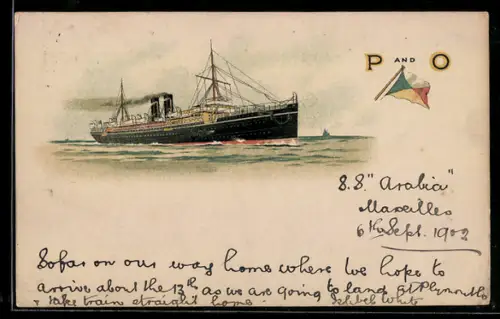 P AND O
S.S. "Arabia"
Marseilles
6th Sept. 1902
So far on our way home where we hope to
arrive about the 13th as we are going to land at Plymouth
& take train straight home.
White